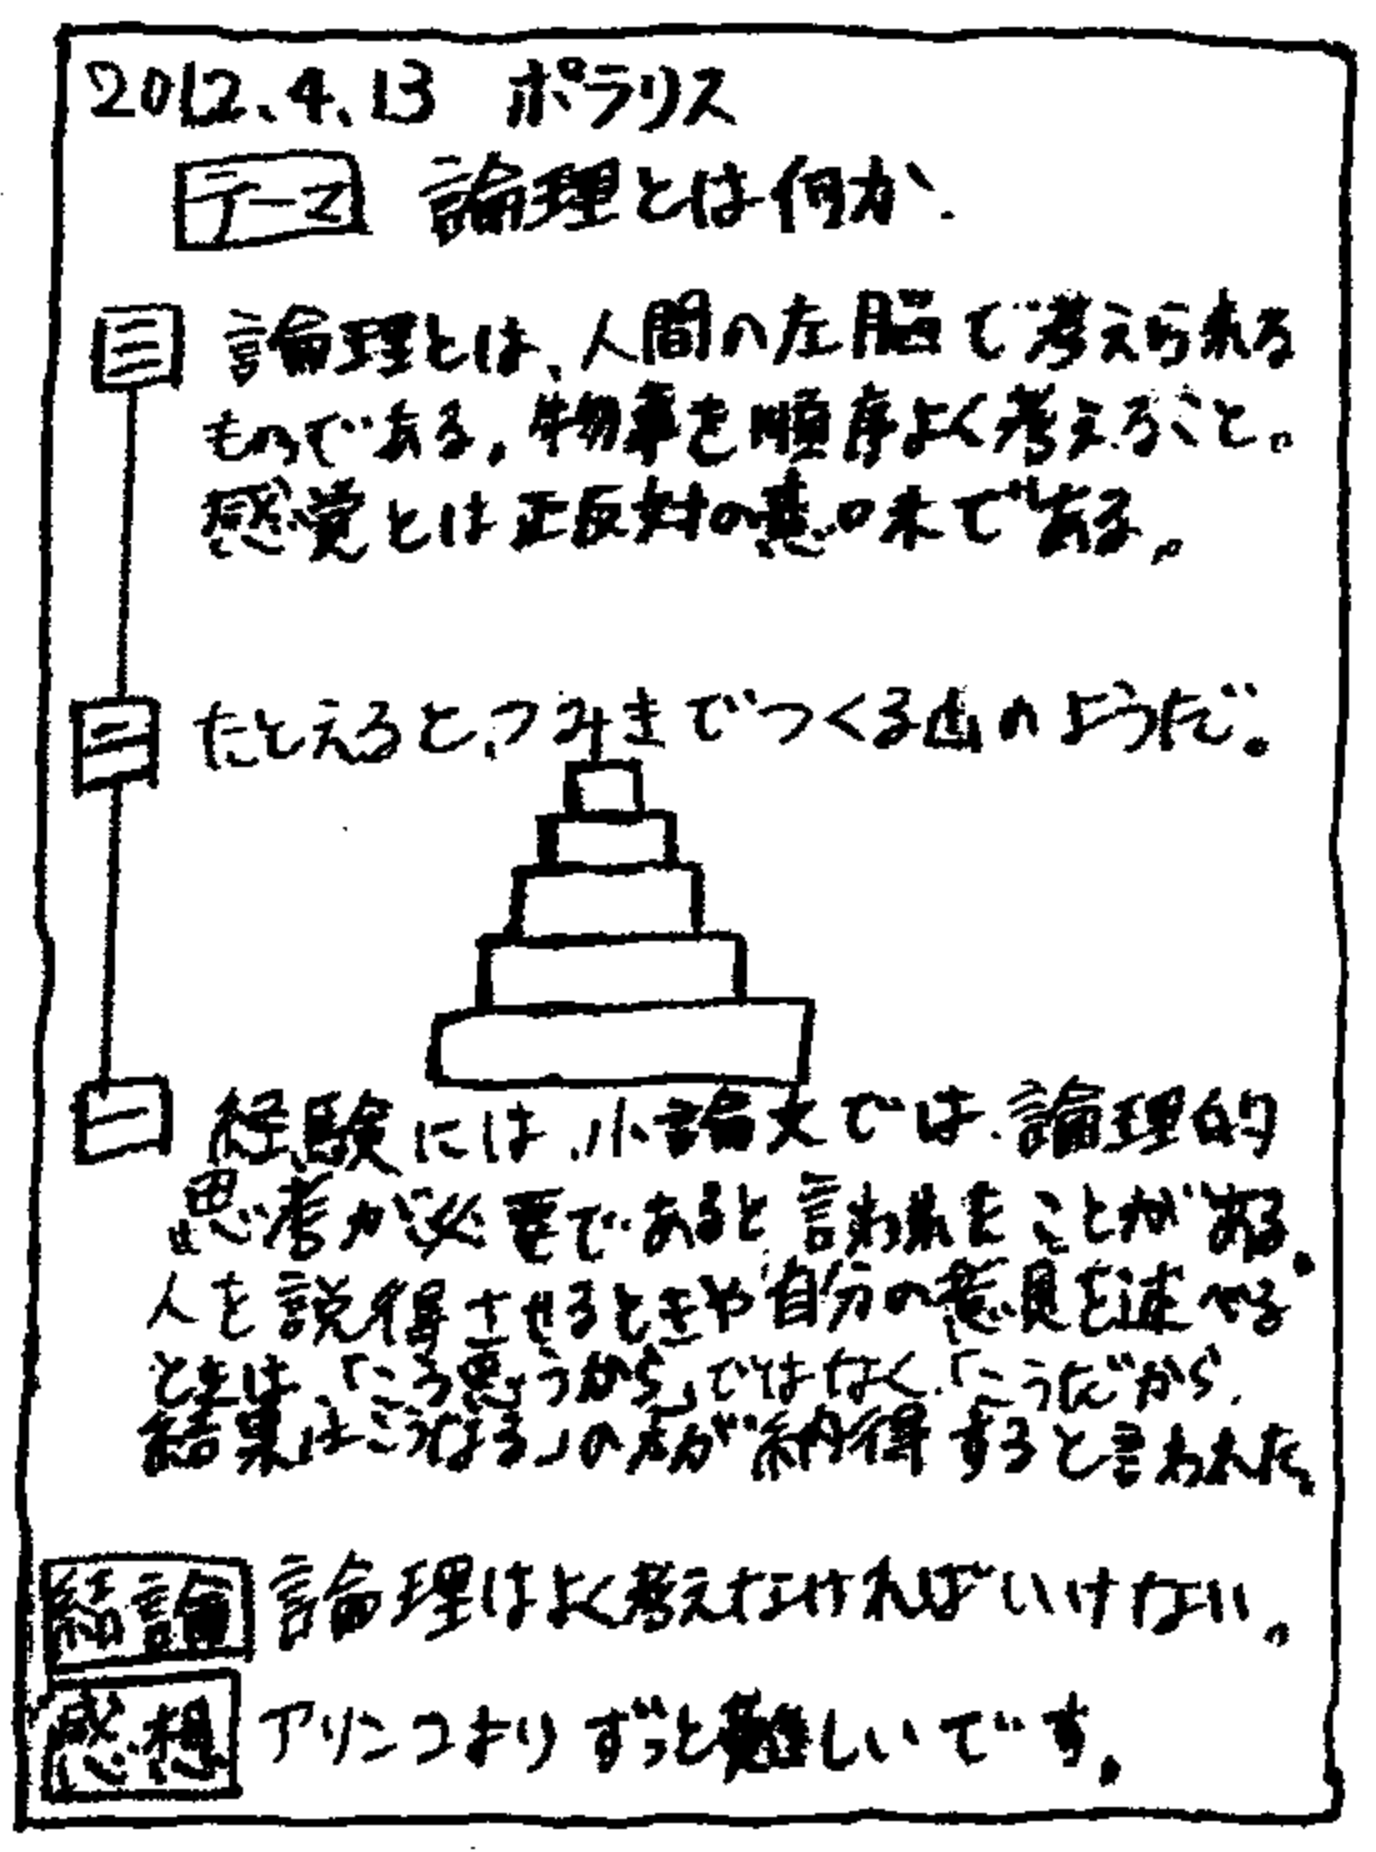 2012.4.13 ポラリス
テーマ 論理とは何か.
三 論理とは、人間の左脳で考えられる
ものである。物事を順序よく考えること。
感覚とは正反対の意味である。
二 たとえると、つみきでつくる山のようだ。
一 経験には、小論文では、論理的
思考が必要であると言われたことがある。
人を説得させるときや自分の意見を述べる
ときは、「こう思うから」ではなく、「こうだから、
結果はこうなる」の方が納得すると言われた。
結論 論理はよく考えなければいけない。
感想 アリンコよりずっと難しいです。